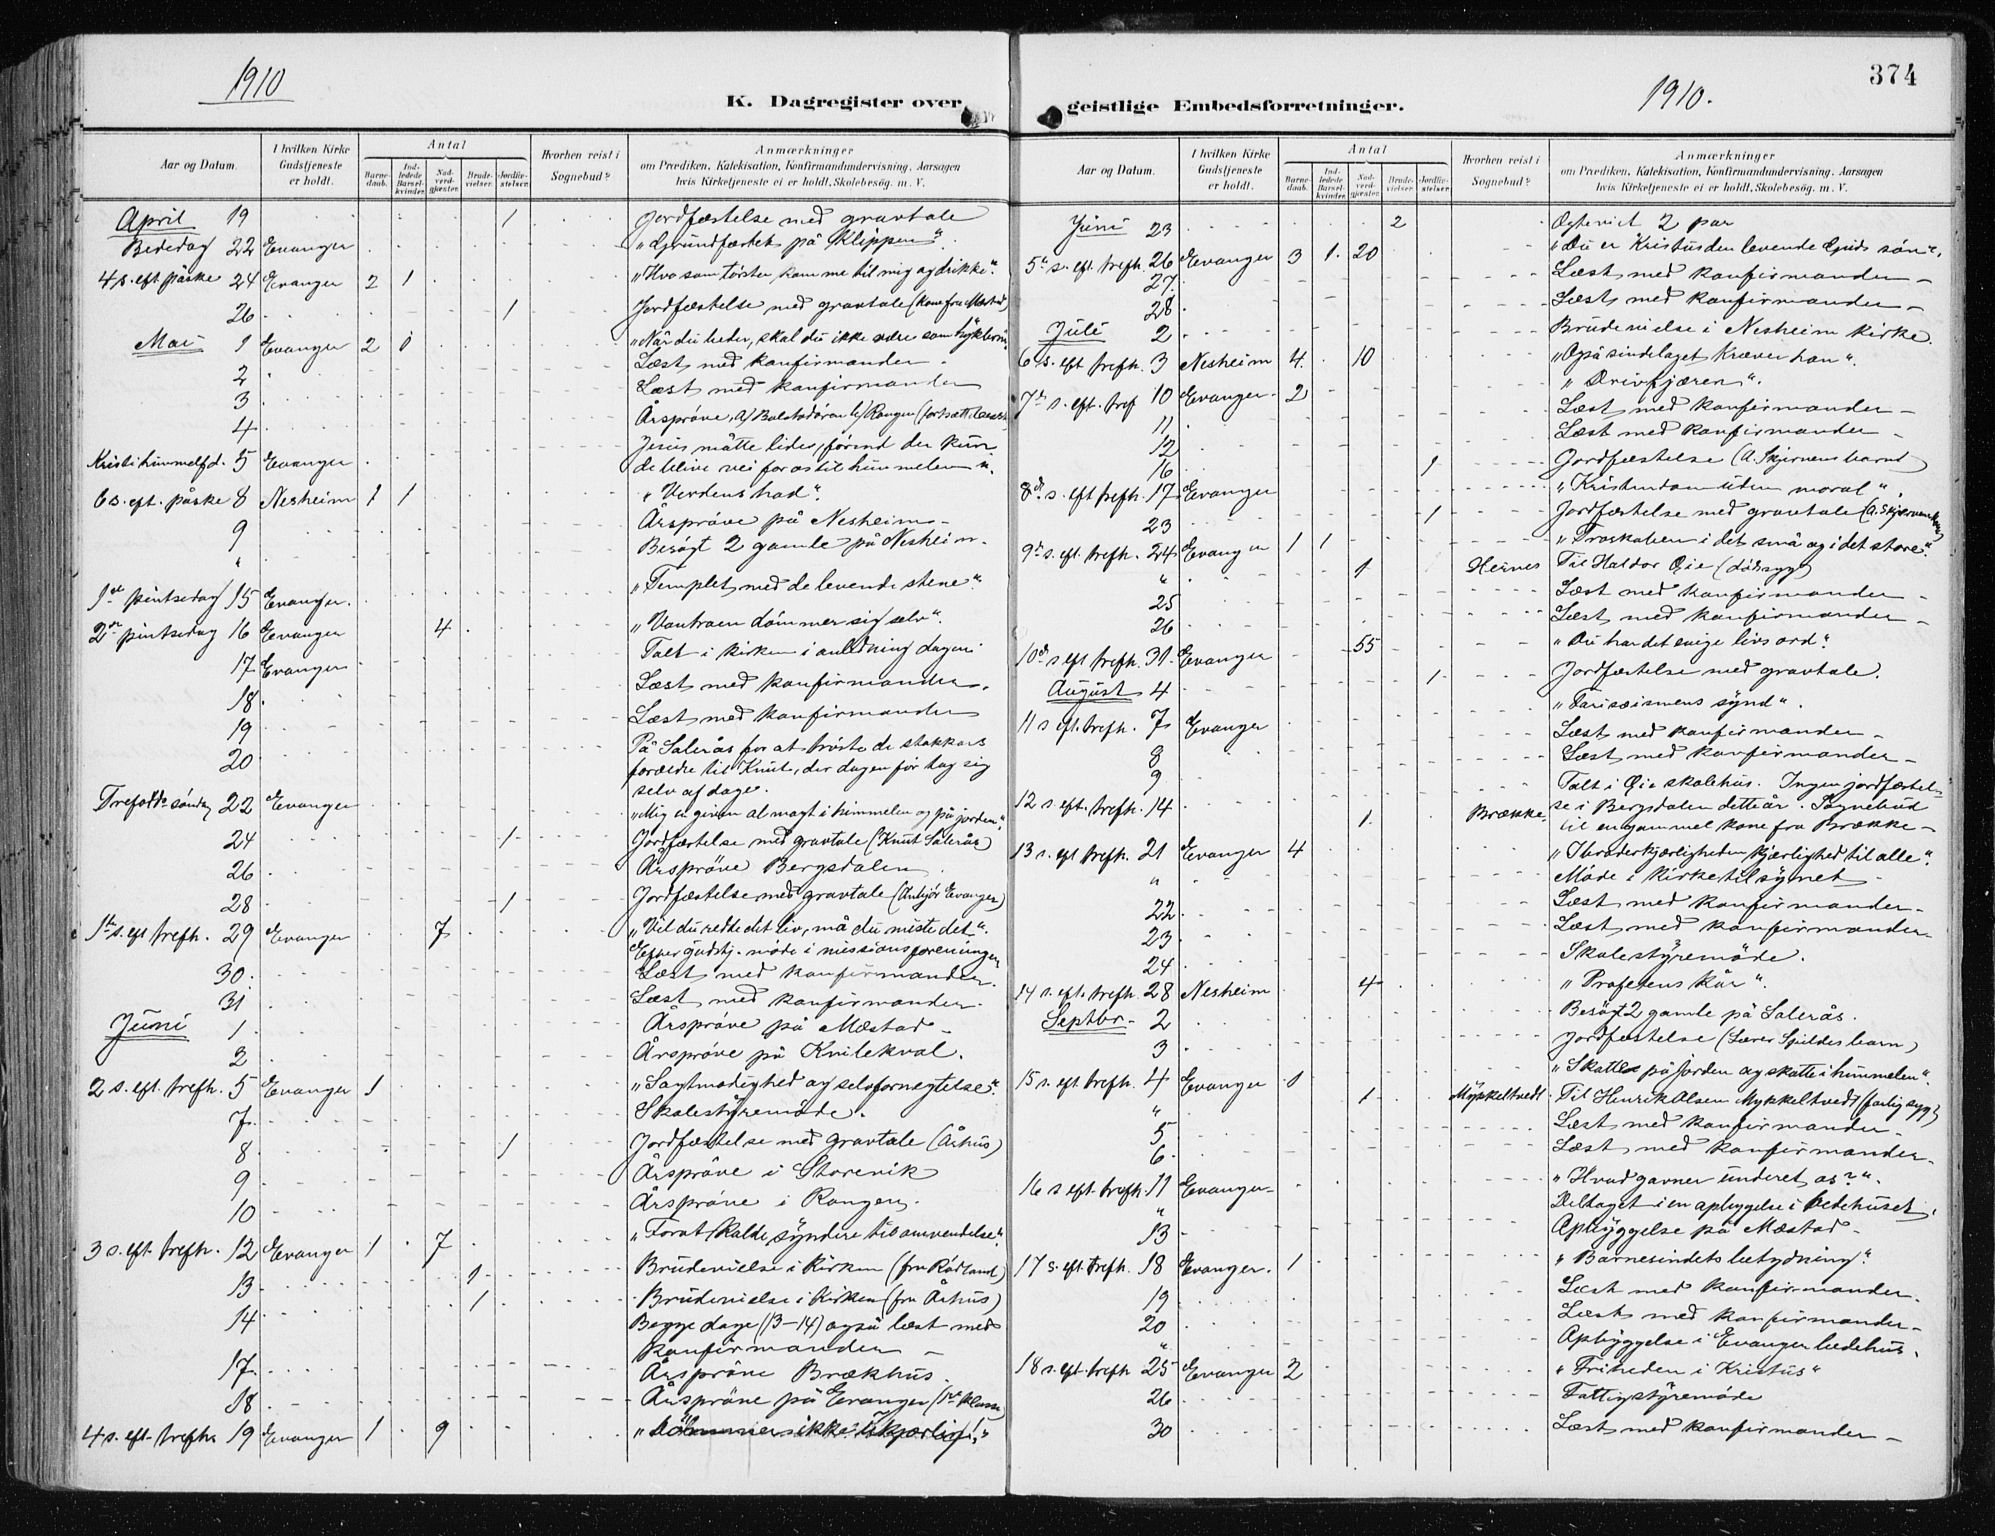 1910
K. Dagregister over
Aar og Datum.
I hvilken Kirke Gudstjeneste er holdt.
Antal
Barnedaab.
Indledede Barselkvinder.
Nadverdgjæster.
Brudevielser.
Jordfæstelser.
Hvorhen reist i Sognebud?
Anmærkninger
om Prædiken, Katekisation, Konfirmandundervisning, Aarsagen
hvis Kirketjeneste ei er holdt, Skolebesøg. m. V.
April 19 1 Jordfæstelse med gravtale
Bededag 22 Evanger „Grundfæstet på Klippen“.
4 s. eft. påske 24 Evanger 2 1 „Hvo som tørster, komme til mig og drikke“.
26 1 Jordfæstelse med gravtale (kone fra Mæstad)
Mai 1 Evanger 2 0 „Når du beder, skal du ikke være som hyklerne
2 Læst med konfirmander
3 Læst med konfirmander
4 Årsprøve, a/ Bolstadøren b/ Rangen
Jesus måtte lide, førend der kun
Kristi himmelfd. 5 Evanger de blive vei for os til himmelen“.
6 s. eft. påske 8 Nesheim 1 1 „Verdens had“.
9 Årsprøve på Nesheim
" Besøgt 2 gamle på Nesheim
1ste pintsedag 15 Evanger. „Templet med de levende stene“
2den pintsedag 16 Evanger 4 „Vantroen dømmer sig selv“.
17 Evanger Talt i kirken i anledning dagen.
18 Læst med konfirmander.
19 Læst med konfirmander
20 På Salerås for at trøste de stakkars
forældre til Knut, der dagen før tog sig
selv af dage.
Trefoldh. søndag 22 Evanger „Mig er given al magt i himmelen og på jorden“.
24 1 Jordfæstelse med gravtale (Knut Salerås)
26 Årsprøve Bergsdalen
28 1 Jordfæstelse med gravtale
1ste s. eft trefh. 29 Evanger 7 „Vil du redde dit liv, må du miste det“.
Efter gudstj. møde i missionsforeningen
30 Læst med konfirmander.
31 Læst med konfirmander.
Juni 1 Årsprøve på Mæstad
2 Årsprøve på Knilekval.
2 s. eft. trefh. 5 Evanger 1 „Sagtmodighed og selvfornegtelse“.
7 Skolestyremøde.
8 1 Jordfæstelse med gravtale (Århus)
9 Årsprøve i Storevik
10 Årsprøve i Rangen.
3 s. eft. trefh. 12 Evanger 1 7 „For at kalde syndere til omvendelse“.
13 1 Brudevielse i Kirken (fra Rødland)
14 1 Brudevielse i Kirken (fra Århus)
Begge dage (13–14) også læst med
konfirmander
17 Årsprøve Brækhus
18 Årsprøve på Evanger (1ste klasse)
4 s. eft. trefh. 19 Evanger 1 9 „Dømmer ikke
374
geistlige Embedsforretninger.
1910.
Aar og Datum.
I hvilken Kirke Gudstjeneste er holdt.
Antal
Barnedaab.
Indledede Barselkvinder.
Nadverdgjæster.
Brudevielser.
Jordfæstelser.
Hvorhen reist i Sognebud?
Anmærkninger
om Prædiken, Katekisation, Konfirmandundervisning, Aarsagen
hvis Kirketjeneste ei er holdt, Skolebesøg. m. V.
Juni 23 2 Egteviet 2 par
5te s. eft. trefh. 26 Evanger 3 1 20 „Du er Kristus den levende Guds søn“.
27 Læst med konfirmander
28 Læst med konfirmander
Juli 2 Brudevielse i Nesheim kirke.
6 s. eft trefh. 3 Nesheim 4 10 „Også sindelaget kræver han“.
7de s. eft. tref 10 Evanger 2 „Drivfjæren“.
11 Læst med konfirmander
12 Læst med konfirmander
16 1 Jordfæstelse (A. Skjervens barn)
8de s. eft trefh. 17 Evanger „Kristendom uden moral“.
23 1 Jordfæstelse med gravtale
9de s. eft. trefh. 24 Evanger 1 1 „Troskaben i det små og i det store“.
" 1 Hernes Til Haldor Øie (dødssyg)
25 Læst med konfirmander
26 Læst med konfirmander
10de s eft trefh. 31 Evanger 55 „Du har det evige livs ord“.
August 4 1 Jordfæstelse med gravtale.
11 s eft. trefh. 7 Evanger „Farisæismens synd“.
8 Læst med konfirmander
9 Læst med konfirmander
12 s. eft. trefh. 14 Talt i Øie skolehus. Ingen jordfæstel-
se i Bergsdalen dette år. Sognebud
1 Brække. til en gammel kone fra Brække
13 s. eft trefh. 21 Evanger 4 „I broderkjærligheden kjærlighed til alle“.
" Møde i kirketilsynet
22 Læst med konfirmander
23 Læst med konfirmander
24 Skolestyremøde.
14 s. eft. trefh. 28 Nesheim 4 „Profetens kår“.
Septbr 2 Besøgt 2 gamle på Salerås.
3 Jordfæstelse (Lærer Spildes barn)
15 s. eft trefh. 4 Evanger 0 „Skatte på jorden og skatte i himmelen“.
" 1 Mykkeltvedt Til Henrik Olsen Mykkeltvedt (farlig syg)
5 Læst med konfirmander
6 Læst med konfirmander
16 s eft. trefh. 11 Evanger „Hvad gavner underet os?“.
" Deltaget i en opbyggelse i bedehuset.
13 Opbyggelse på Mæstad
17 s. eft. trefh. 18 Evanger. 1 „Barnesindets betydning“.
19 Læst med konfirmander.
20 Læst med konfirmander
" Opbyggelse i Evanger bedehus.
18 s. eft trefh 25 Evanger 2 „Friheden i Kristus“
26 Fattigstyremøde
30 Læst med konfirmander